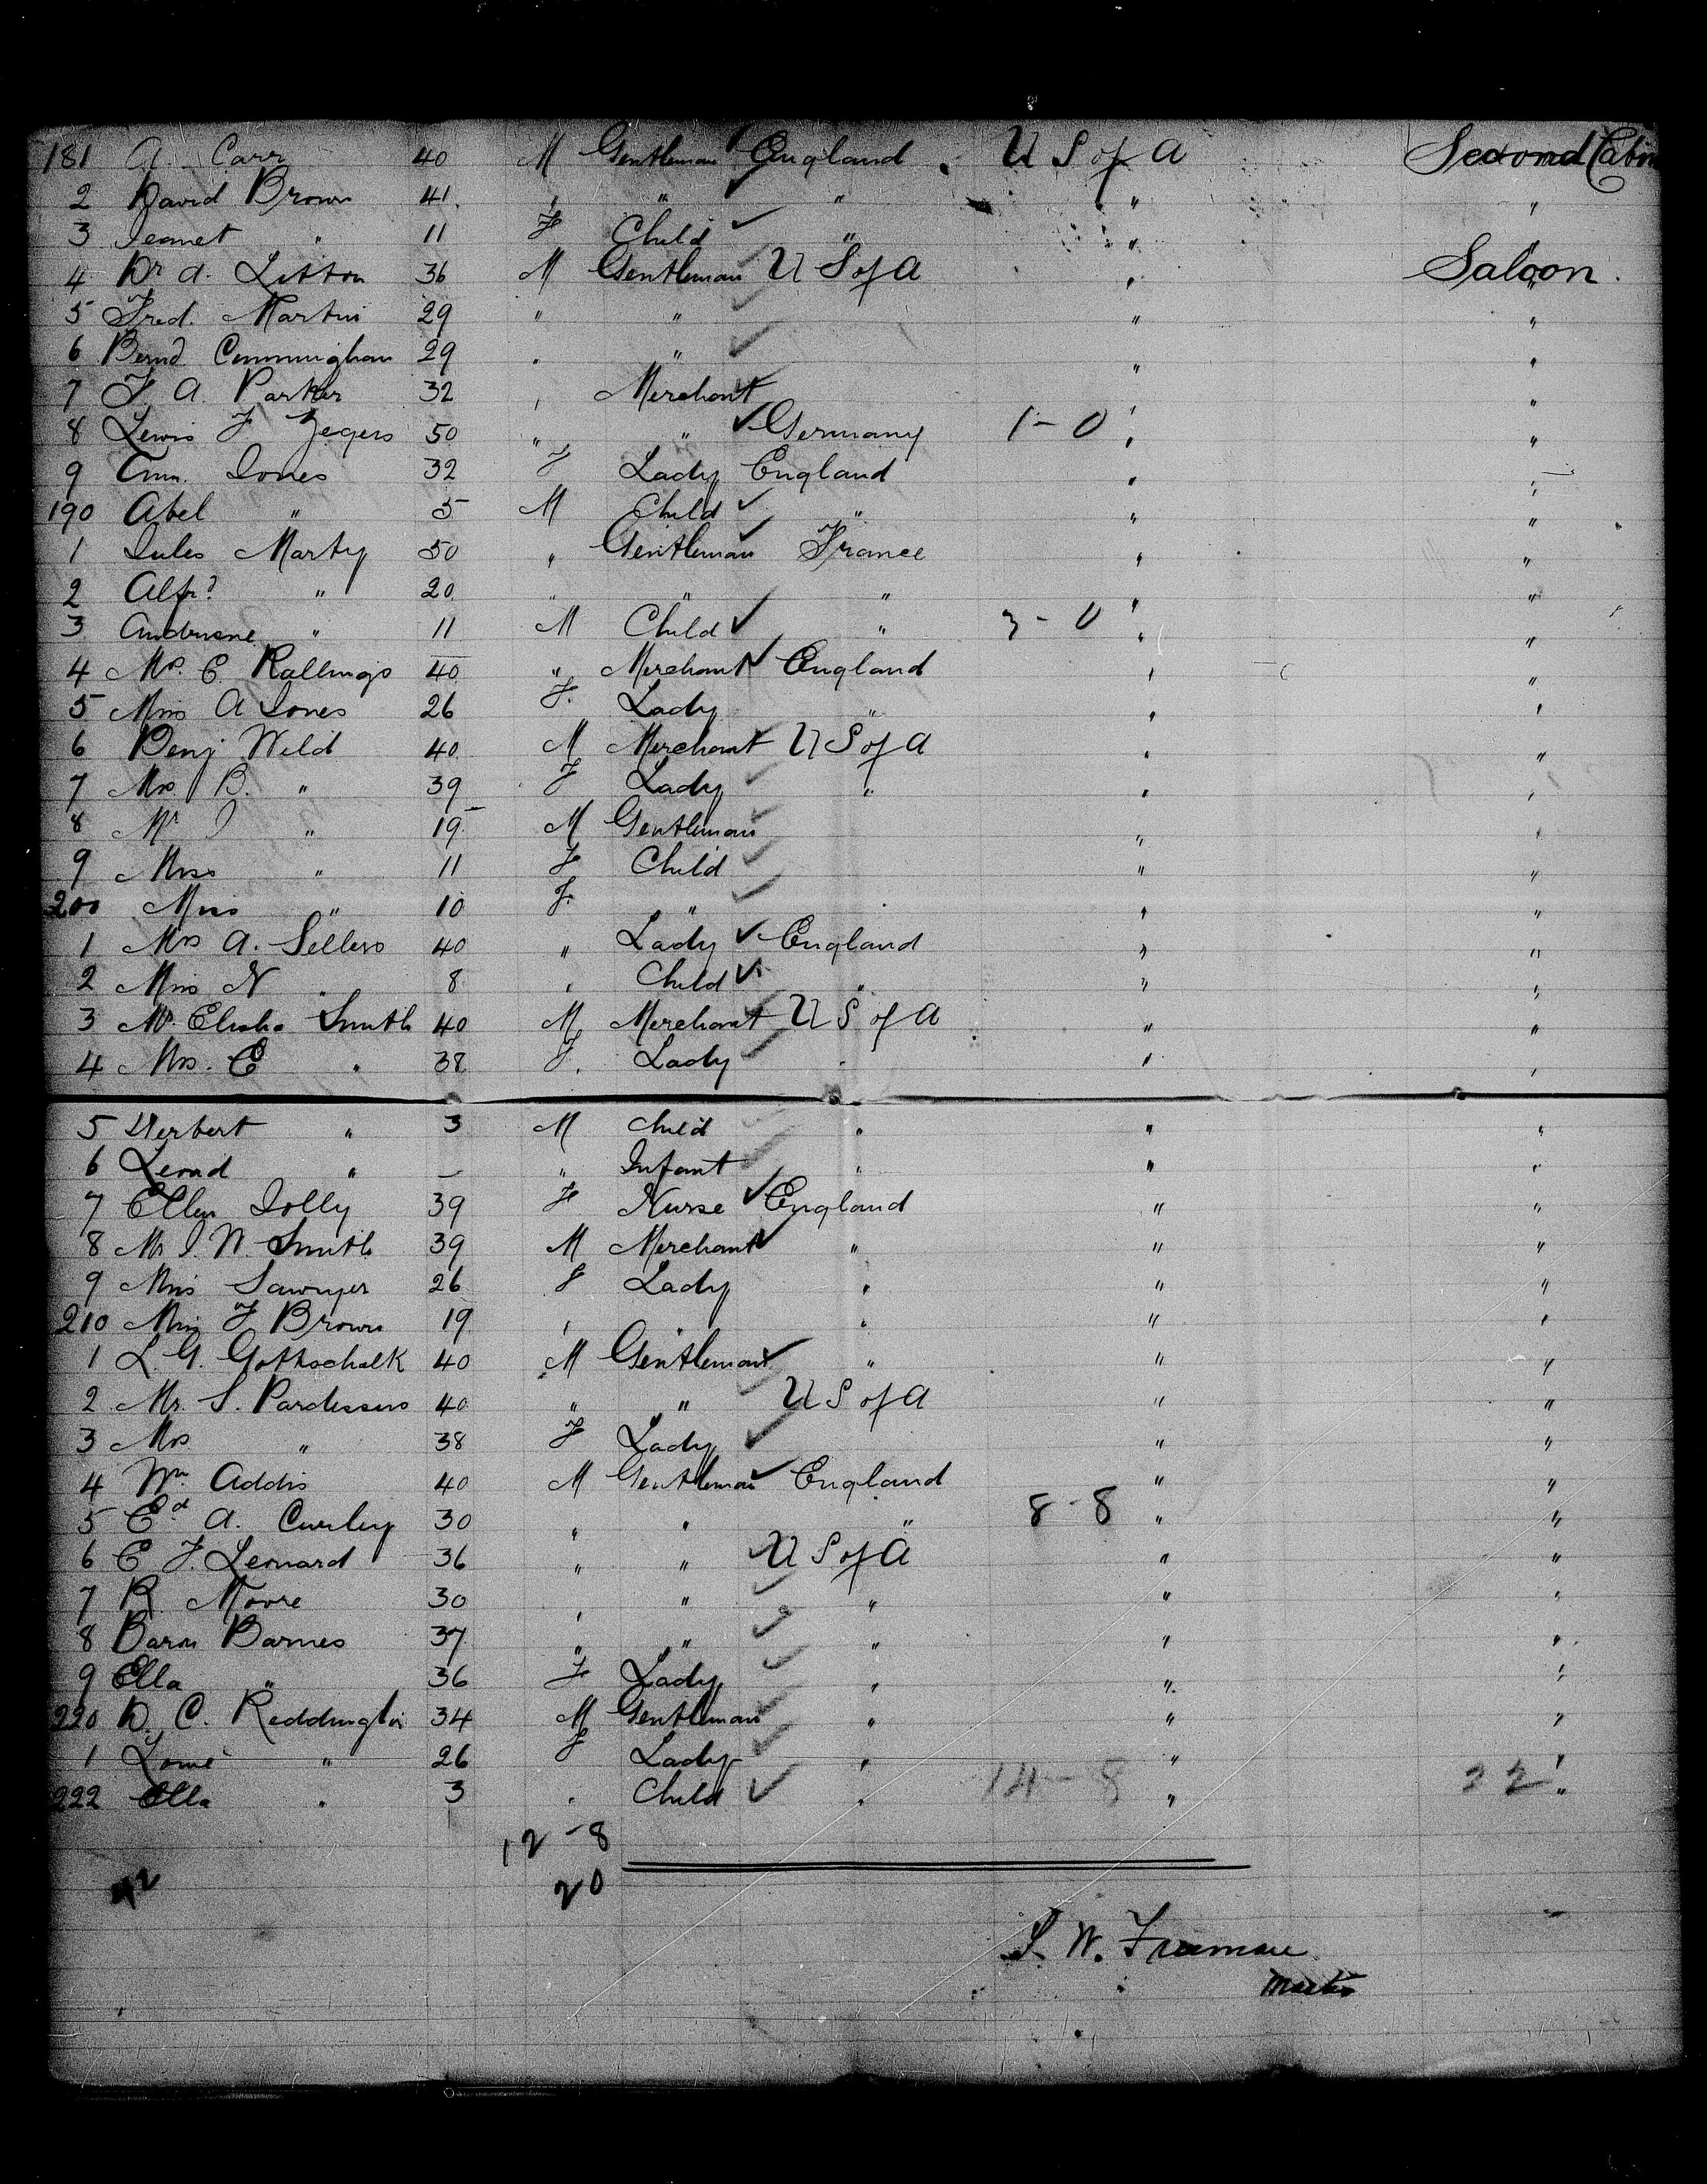 181 A. Carr 40 M Gentleman England U S of A Second Cabin
2 David Brown 41 " " " " "
3 Jeanet " 11 F Child " "
4 Dr A. Litton 36 M Gentleman U S of A " Saloon
5 Fred. Martin 29 " " " "
6 Bernd Cunningham 29 " " " "
7 F. A. Parker 32 " Merchant " "
8 Lewis F Zegers 50 " " Germany 1-0 " "
9 Ann Jones 32 F Lady England " "
190 Abel " 5 M Child " " "
1 Jules Marty 50 " Gentleman France " "
2 Alfd " 20 " " " " "
3 " 11 M Child " 3-0 " "
4 Mr. C. Rallings 40 " Merchant England " "
5 Miss A Jones 26 F. Lady " " "
6 Benj Wild 40 M Merchant U S of A " "
7 Mrs. B. " 39 F Lady " " "
8 Mr J " 19 M Gentleman " "
9 Miss " 11 F Child " "
200 Miss " 10 F. " " "
1 Mrs A. Sellers 40 " Lady England " "
2 Miss N " 8 " Child " " "
3 Mr. Elisha Smith 40 M Merchant U S of A " "
4 Mrs. E " 38 F. Lady " " "
5 Herbert " 3 M Child " " "
6 " — " Infant " " "
7 Ellen Jolly 39 F Nurse England " "
8 Mr J. W. Smith 39 M Merchant " " "
9 Miss Sawyer 26 F Lady " " "
210 Miss F Brown 19 " " " "
1 L. G. Gottschalk 40 M Gentleman " " "
2 Mr. S. Pardessus 40 " " U S of A " "
3 Mrs " 38 F Lady " "
4 Wm Addis 40 M Gentleman England " "
5 Ed A. Curley 30 " " " 8-8 " "
6 E F. Leonard 36 " " U S of A " "
7 R. Moore 30 " " " " "
8 Baron Barnes 37 " " " " "
9 Ella " 36 F Lady " " "
220 D. C. Reddington 34 M Gentleman " " "
1 " 26 F Lady " " "
222 Ella " 3 " Child " 14-8 " 22 "
12-8
42 20
S. W. Freeman
Master